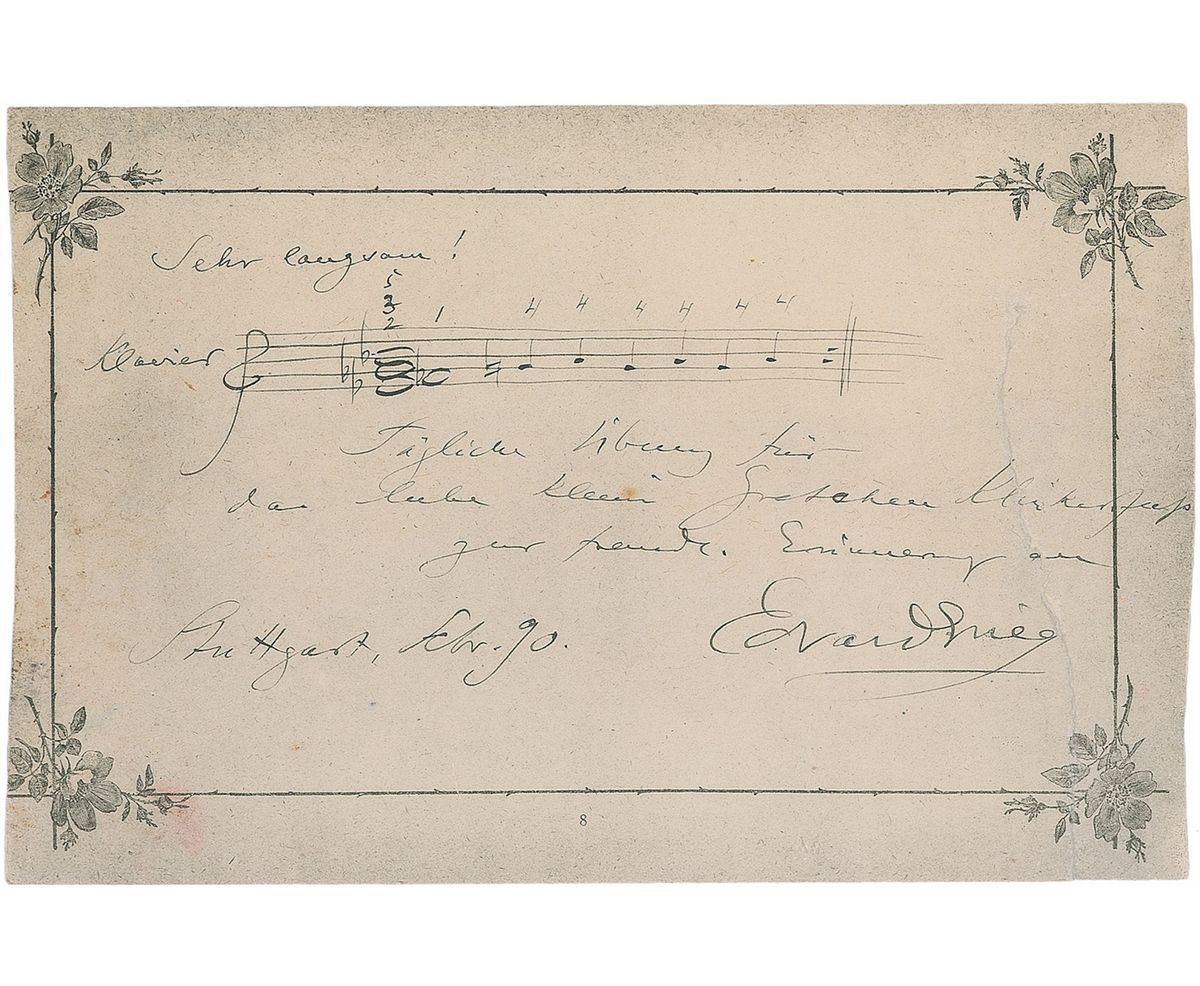 Sehr langsam!
5
3
2 1 4 4 4 4 4 4
Klavier
Tägliche Übung für
das liebe kleine Gretchen Klinkerfuß
zur freundl. Erinnerung an
Stuttgart, Febr. 90. Edvard Grieg
8